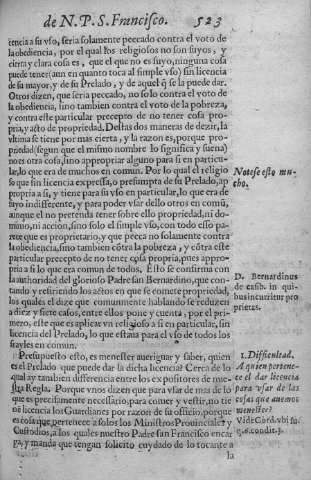 de N. P. S. Francisco. 523
cencia a su vso, seria solamente peccado contra el voto de
la obediencia, por el qual los religiosos no son suyos, y
cierta y clara cosa es, que el que no es suyo, ninguna cosa
puede tener (aun en quanto toca al simple vso) sin licencia
de su mayor, y de su Prelado, y de aquel q̃ se la puede dar.
Otros dizen, que seria peccado, no solo contra el voto de
la obediencia, sino tambien contra el voto de la pobreza,
y contra este particular precepto de no tener cosa pro-
pria, y acto de propriedad. Destas dos maneras de dezir, la
vltima se tiene por mas cierta, y la razon es, porque pro-
priedad (segun que el mismo nombre lo significa y suena)
no es otra cosa, sino appropriar alguno para si en particu-
lar, lo que era de muchos en comun. Por lo qual el religio
so que sin licencia expressa, o presumpta de su Prelado, ap
propria a si, y tiene para su vso en particular, lo que era de
suyo indifferente, y para poder vsar dello otros en comũ,
aunque el no pretenda tener sobre ello propriedad, ni do-
minio, ni accion, sino solo el simple vso, con todo esso pa-
rece que es proprietario, y que pecca no solamente contra
la obediencia, sino tambien cõtra la pobreza, y cõtra este
particular precepto de no tener cosa propria, pues appro-
pria a si lo que era comun de todos. Esto se confirma con
la authoridad del glorioso Padre san Bernardino, que con-
tando y refiriendo los actos en que se comete propriedad,
los quales el dize que comunmente hablando se reduzen
a diez y siete casos, entre ellos pone y cuenta, por el pri-
mero, este que es aplicar vn religioso a si en particular, sin
licencia del Prelado, lo que estaua para el vso de todos los
frayles en comun.
Presupuesto esto, es menester aueriguar y saber, quien
es el Prelado que puede dar la dicha licencia? Cerca de lo
qual ay tambien differencia entre los expositores de nue-
stra Regla. Porque vnos dizen que para vsar de mas de lo
que es precisamente necessario, para comer y vestir, no tie
nē licencia los Guardianes por razon de su officio, porque
es cosa que pertenece a solos los Ministros Prouinciales y
Custodios, a los quales nuestro Padre san Francisco encar
ga, y manda que tengan solicito cuydado de lo tocante a
la
Notese esto mu-
cho.
D. Bernardinus
de casib. in qui-
bus incurritur pro
prietas.
1. Difficultad.
A quien pertene-
ce el dar licencia
para vsar de las
cosas que auemos
menester?
Vide Cord. vbi su.
q. 6. condit. 3.